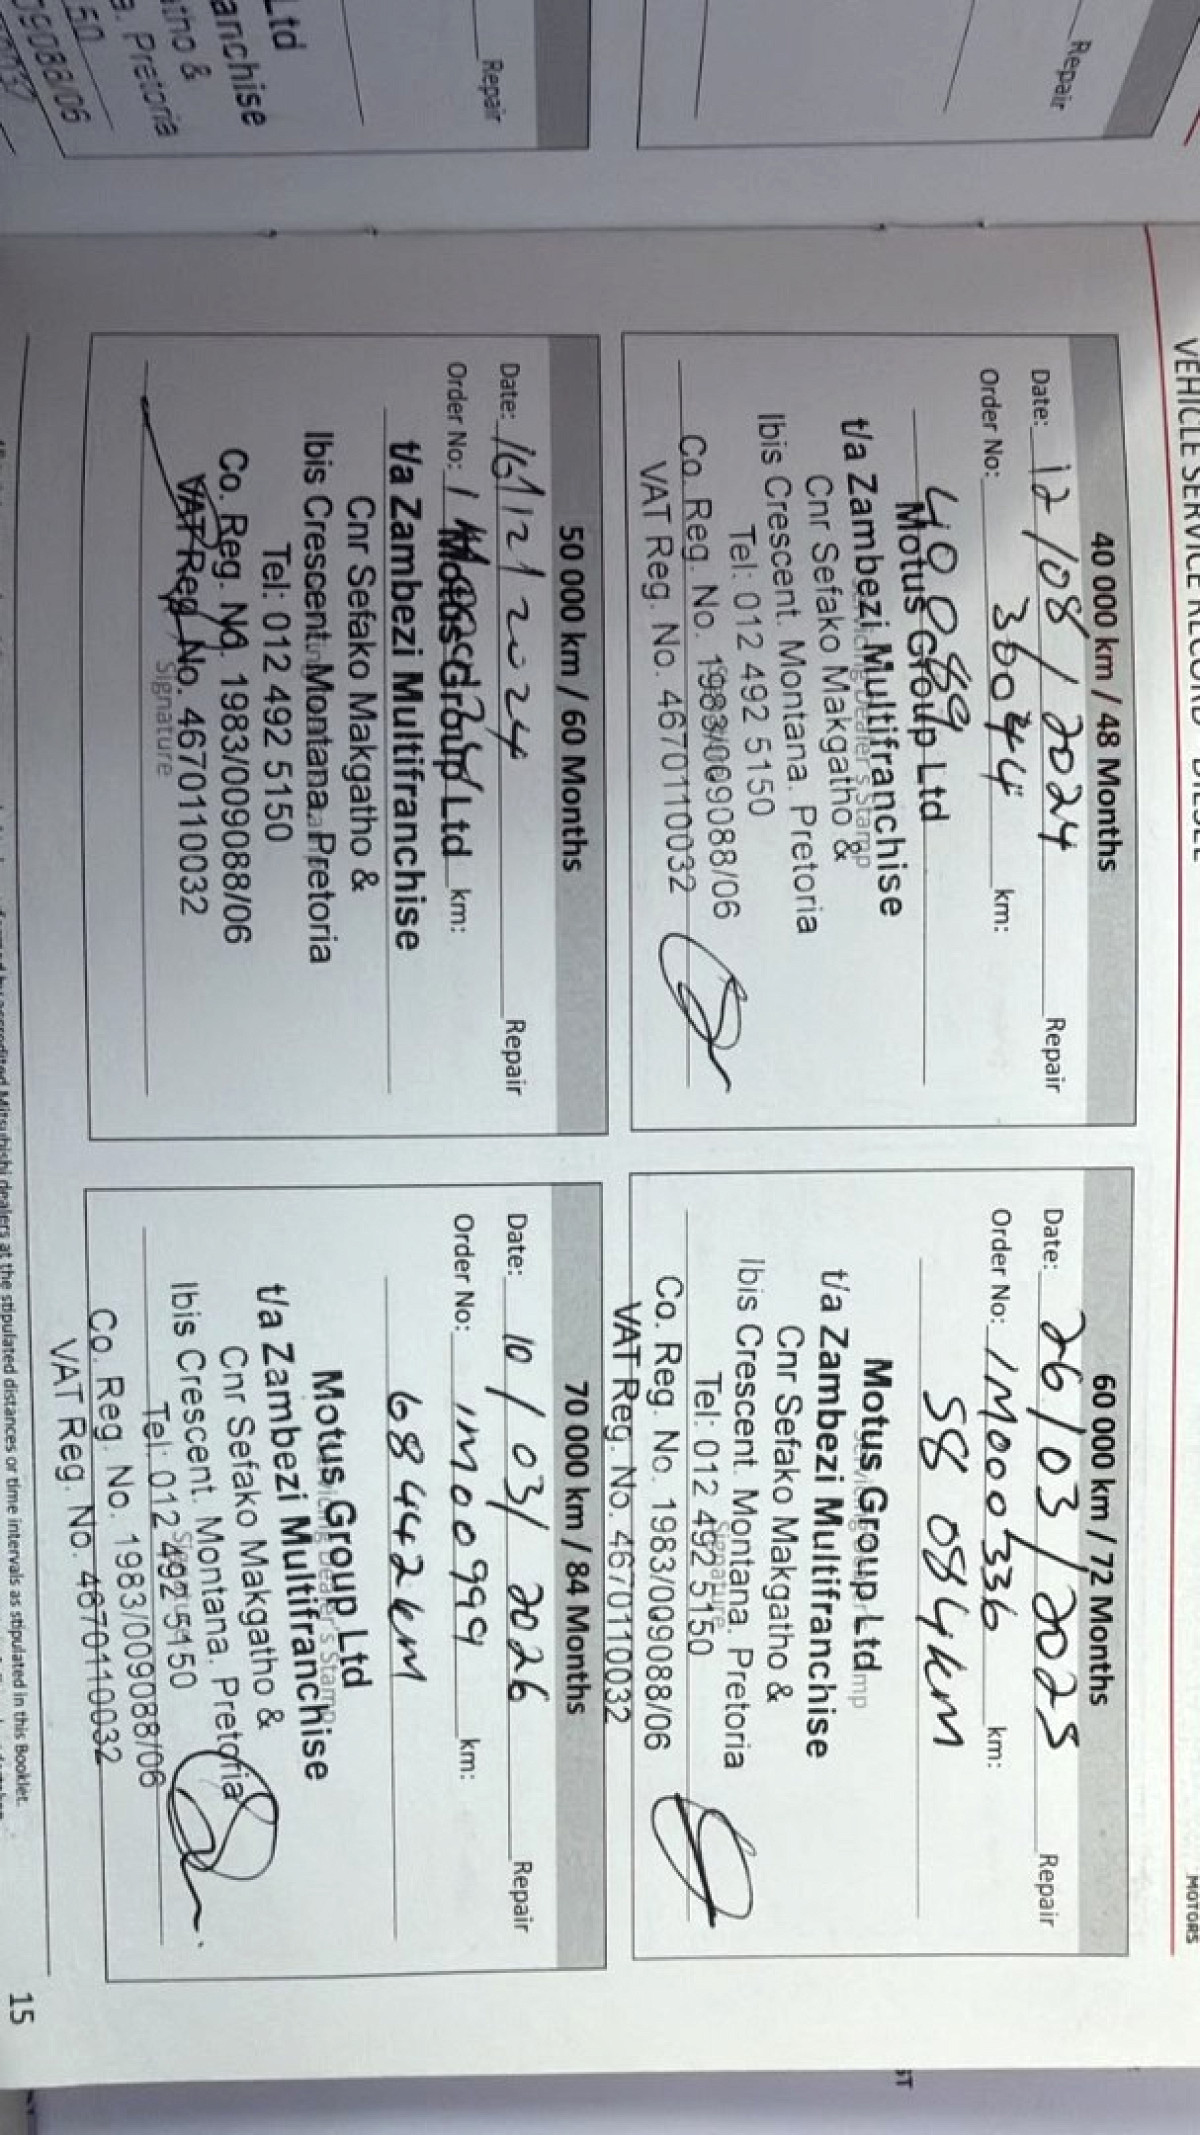 Repair
Repair
Ltd
anchise
tho &
a. Pretoria
50
09088/06
VEHICLE SERVICE RECORD - DIESEL
MOTORS
40 000 km / 48 Months
Date: 12/08/2024 Repair
Order No: 36044 km:
40089
Motus Group Ltd
t/a Zambezi Multifranchise
Cnr Sefako Makgatho &
Ibis Crescent. Montana. Pretoria
Tel: 012 492 5150
Co. Reg. No. 1983/009088/06
VAT Reg. No. 4670110032
60 000 km / 72 Months
Date: 26/03/2025 Repair
Order No: IM000336 km:
58 084km
Motus Group Ltd
t/a Zambezi Multifranchise
Cnr Sefako Makgatho &
Ibis Crescent. Montana. Pretoria
Signature
Tel: 012 492 5150
Co. Reg. No. 1983/009088/06
VAT Reg. No. 4670110032
50 000 km / 60 Months
Date: 16/12/2024 Repair
Order No: km:
Motus Group Ltd
t/a Zambezi Multifranchise
Cnr Sefako Makgatho &
Ibis Crescent. Montana. Pretoria
Tel: 012 492 5150
Co. Reg. No. 1983/009088/06
VAT Reg. No. 4670110032
Signature
70 000 km / 84 Months
Date: 10/03/2026 Repair
Order No: IM00999 km:
68442km
Motus Group Ltd
Servicing Dealer's Stamp
t/a Zambezi Multifranchise
Cnr Sefako Makgatho &
Ibis Crescent. Montana. Pretoria
Tel: 012 492 5150
Co. Reg. No. 1983/009088/06
VAT Reg. No. 4670110032
accredited Mitsubishi dealers at the stipulated distances or time intervals as stipulated in this Booklet.
15